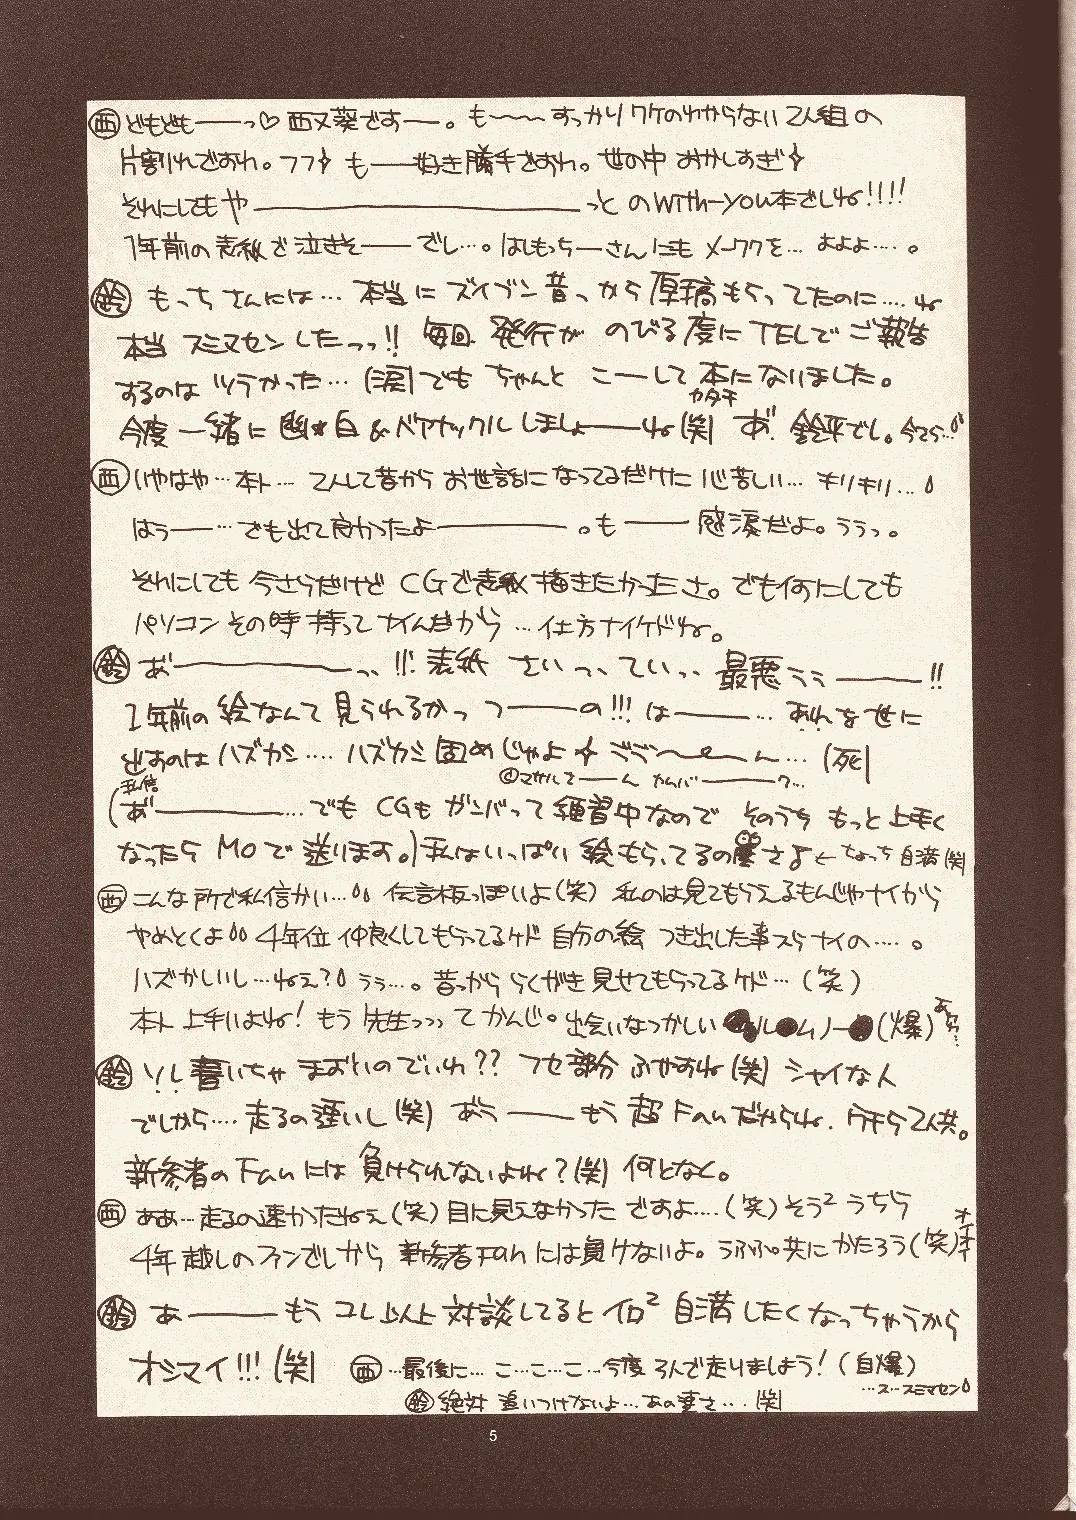 西 どもども――っ♡ 西又葵です―。も～～すっかりワケのわからない2人組の
片割れでおわ。フフ も――好き勝手でおわ。世の中 おかしすぎ
それにしてもや――――――っと のWith-you本でしね!!!!
1年前の表紙で泣きそ――でし…。はしもっちーさんにもメーワクを… よよよ…。
鈴 もっちさんには… 本当にズイブン昔っから原稿もらってたのに…. ね
本当 スミマセンしたっっ!! 毎回 発行が のびる度にTELでご報告
するのはツラかった…(涙)でも ちゃんと こーして本になりました。
カタチ
今度一緒に幽★白&ペヤナックルしましょ――ね(笑) あ゛ 鈴平でし。今さら…
西 いやはや…本ト… 2人して昔からお世話になってるだけに心苦しい… キリキリ…
はぅ――…でも出て良かったよ――――。も――感涙だよ。ううっ。
それにしても今さらだけど CGで表紙描きたかったさ。でも何にしても
パソコンその時持ってナイんだから …仕方ナイケドね。
鈴 あ゛――――――っ、!!! 表紙 さいっ、ていっ、 最悪ぅぅ――――!!
1年前の絵なんて見られるかっつ――の!!! は――――… あれを世に
出すのはハズカシ…. ハズカシ固めじゃよ ゴゴ～～ん… (死)
私信
(あ゛――――――…でも CGもガンバって練習中なので そのうちもっと上手く
なったらMOで送ります。)私はいっぱい絵もらってるの さよ ← ちょっち自満(笑)
西 こんな所で私信かい… 伝言板っぽいよ(笑) 私のは見てもらえるもんじゃナイから
やめとくよ 4年位仲良くしてもらってるケド 自分の絵 つき出した事スラナイの….。
ハズかしいし…ねぇ? ぅぅ…。昔っかららくがき見せてもらってるケド…(笑)
本ト上手いよね! もう先生っっってかんじ。出会いなつかしい ●ル●ムノー●(爆)
鈴 ソレ書いちゃまずいのでいわ?? フセ部分ふやおね(笑) シャイな人
でしから…. 走るの遅いし(笑) あぅ――もう超Fanだからね. ウチら2人共。
新参者のFanには負けられないよね?(笑) 何となく。
西 ああ…走るの速かったねぇ(笑)目に見えなかったですよ….(笑)そう² うちら
4年越しのファンでしから 新参者Fanには負けないよ。うふふ。共にかたろう(笑)
オイオイ
鈴 あ――――もう コレ以上 対談してるとイロ²自満したくなっちゃうから
オシマイ!!! (笑) 西 …最後に… こ…こ…こ…今度 3人で走りましょう!(自爆)
…ス…スミマセン
鈴 絶対 追いつけないよ…あの速さ…. (笑)
5